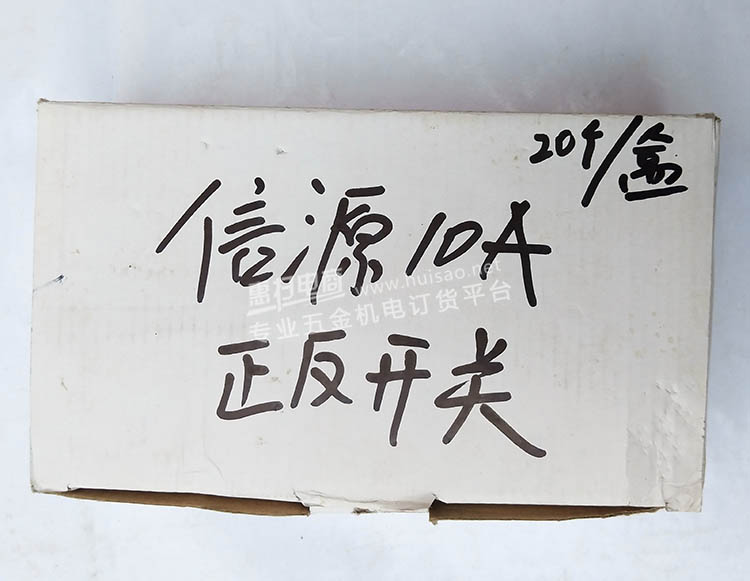 20个/盒
信源10A
惠扫电商 www.huisao.net
专业五金机电订货平台
正反开关